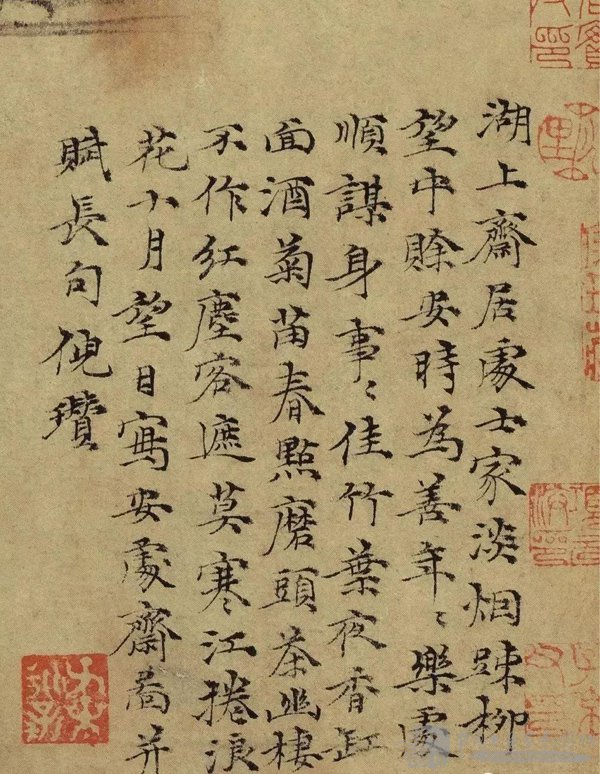 湖上齋居處士家淡烟踈柳
望中賒安時為善年〻樂處
順謀身事〻佳竹葉夜香缸
面酒菊苗春點磨頭茶幽棲
不作紅塵客遮莫寒〻江捲浪
花十月望日寫安處齋圖并
賦長句倪瓚